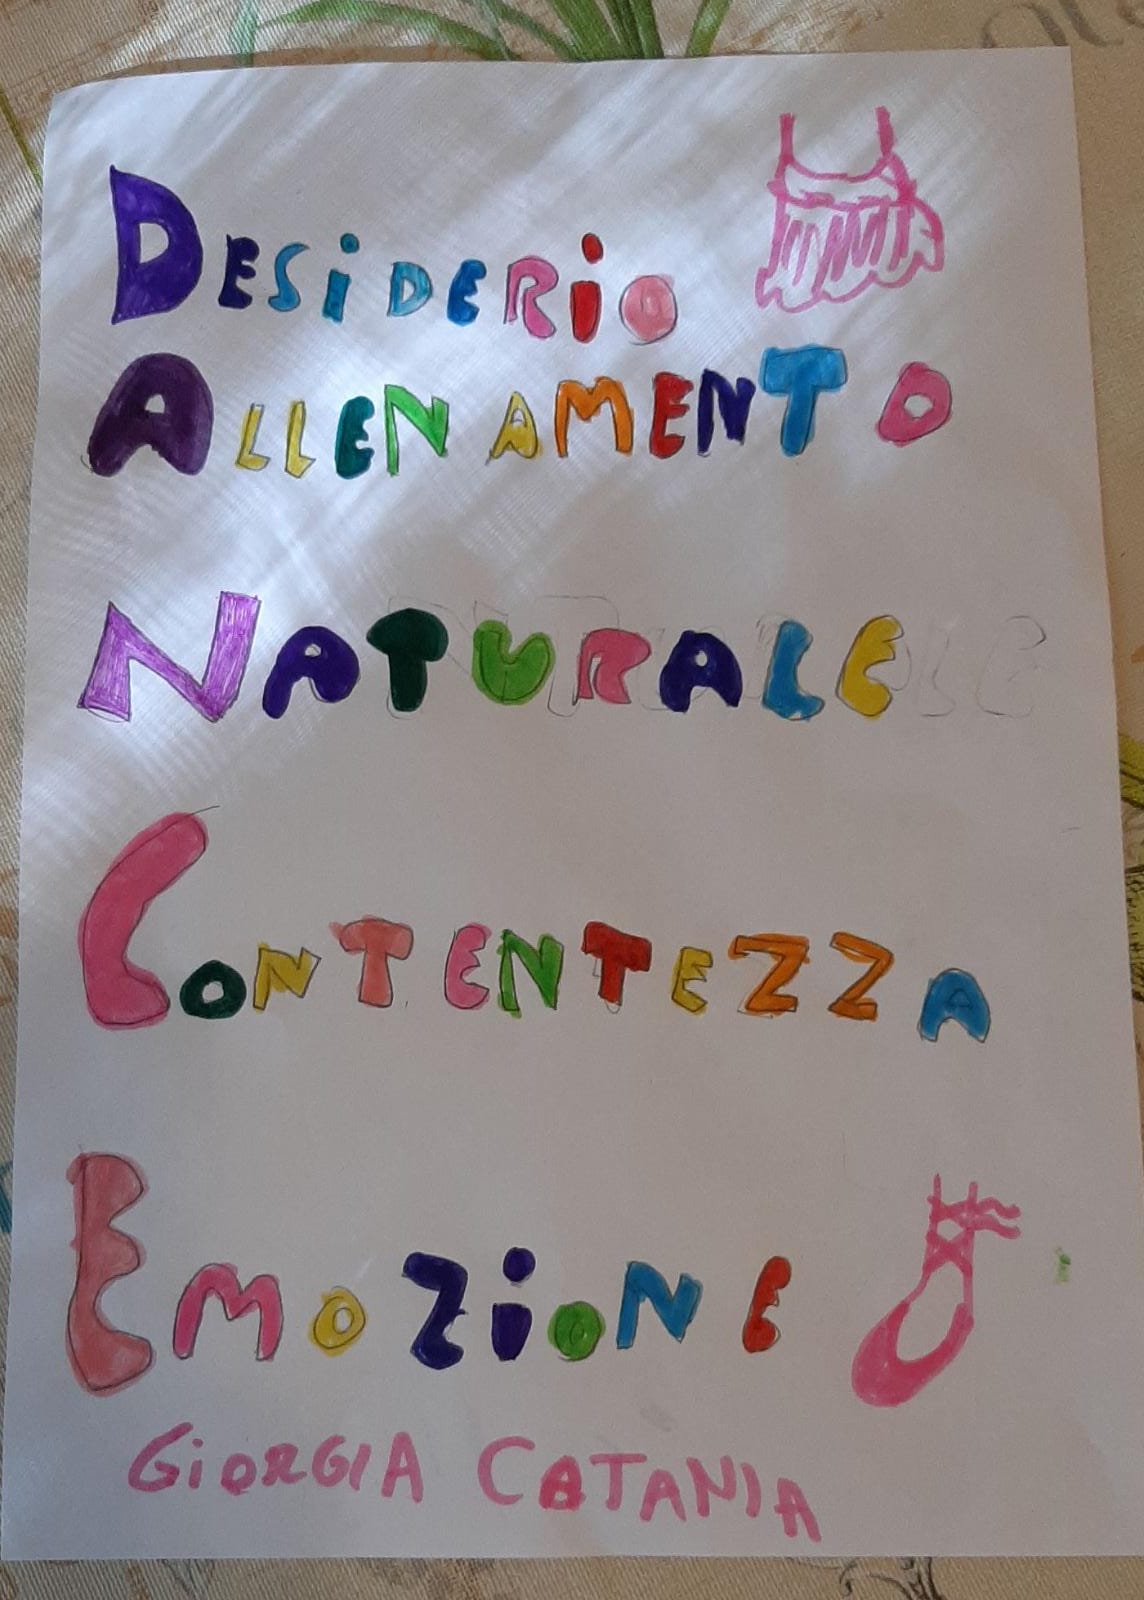 DESiDERiO
ALLENAMENTO
NATURALE
CONTENTEZZA
EMOZiONE
GiORGIA CATANIA